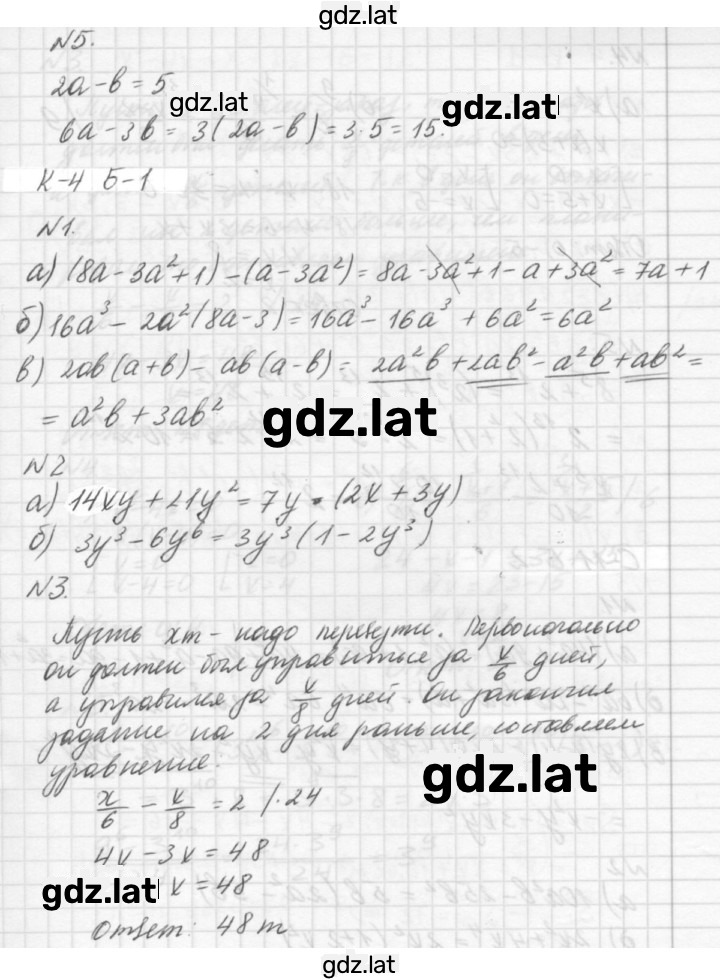 gdz.lat
№5.
2a - b = 5
gdz.lat
gdz.lat
6a - 3b = 3(2a - b) = 3·5 = 15.
К-4 Б-1
№1.
а) (8a - 3a²+1) - (a - 3a²) = 8a - 3a² + 1 - a + 3a² = 7a + 1
б) 16a³ - 2a²(8a - 3) = 16a³ - 16a³ + 6a² = 6a²
в) 2ab(a+b) - ab(a-b) = 2a²b + 2ab² - a²b + ab² =
= a²b + 3ab²
gdz.lat
№2
а) 14xy + 21y² = 7y · (2x + 3y)
б) 3y³ - 6y⁶ = 3y³(1 - 2y³)
№3.
Пусть xт - надо перевезти. Первоначально
он должен был управиться за x/6 дней,
а управился за x/8 дней. Он закончил
задание на 2 дня раньше, составляем
уравнение:
gdz.lat
x/6 - x/8 = 2 /·24
4x - 3x = 48
gdz.lat
x = 48
Ответ: 48 т
gdz.lat